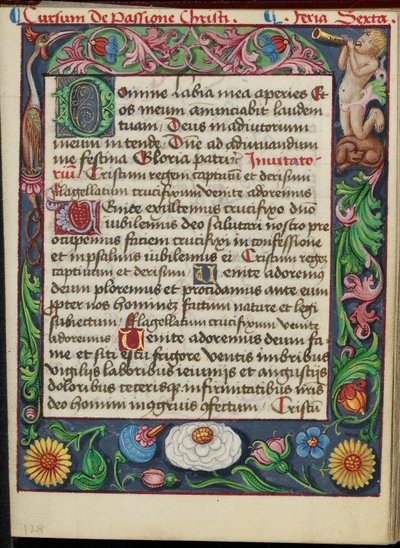 Cursum De Passione Christi. Feria Sexta.
Domine labia mea aperies Et
os meum annunciabit laudem
tuam. Deus in adiutorium
meum intende Dne ad adiuuandum
me festina Gloria patri: Inuitato-
riu Cristum regem captum et derisum
flagellatum crucifixum venite adoremus
Uenite exultemus crucifixo duo
iubilemus deo salutari nostro pre
ocupemus faciem crucifixi in confessione
et in psalmis iubilemus ei Cristum rege
captum et derisum Uenite adoremus
deum ploremus et procidamus ante eum
qpter nos homines factum nature et legi
subiectum flagellatum crucifixum venite
adoremus Uenite adoremus deum fa-
me et siti estu frigore ventis imbribus
vigilijs laboribus ieiunijs et angustijs
doloribus ceterisque infirmitatibus nris
deo homini Cristu
128